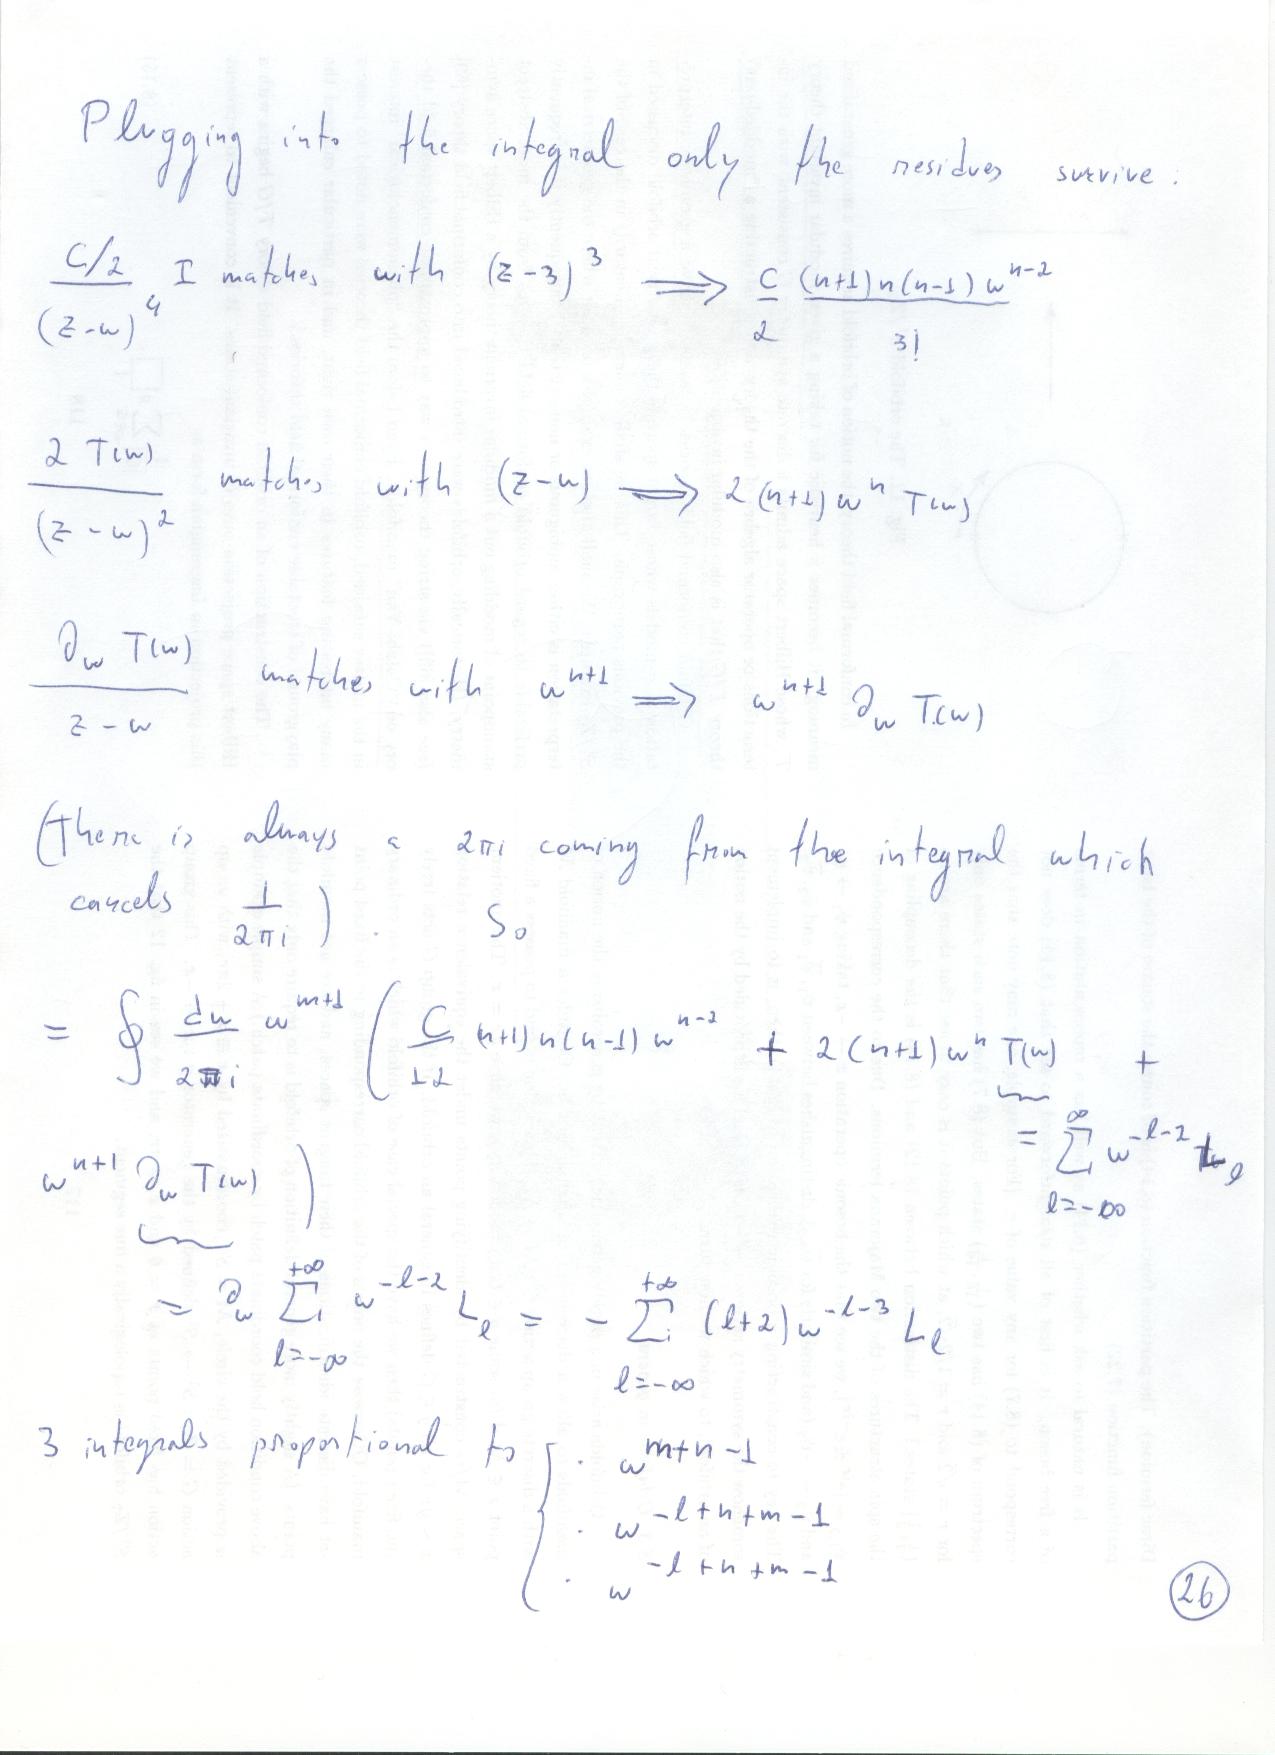 Plugging into the integral only the residues survive:
\frac{C/2}{(z-w)^4} I matches with (z-3)^3 ⟹ \frac{C}{2} \frac{(n+1)n(n-1)w^{n-2}}{3!}
\frac{2 T(w)}{(z-w)^2} matches with (z-w) ⟹ 2(n+1)w^n T(w)
\frac{∂_w T(w)}{z-w} matches with w^{n+1} ⟹ w^{n+1} ∂_w T(w)
(There is always a 2πi coming from the integral which
cancels \frac{1}{2πi}). So
= ∮ \frac{dw}{2πi} w^{m+1} ( \frac{C}{12} (n+1)n(n-1)w^{n-2} + 2(n+1)w^n T(w) +
= ∑_{l=-∞}^{∞} w^{-l-2} L_l
w^{n+1} ∂_w T(w) )
= ∂_w ∑_{l=-∞}^{+∞} w^{-l-2} L_l = - ∑_{l=-∞}^{+∞} (l+2) w^{-l-3} L_l
3 integrals proportional to { · w^{m+n-1}
· w^{-l+n+m-1}
· w^{-l+n+m-1}
26